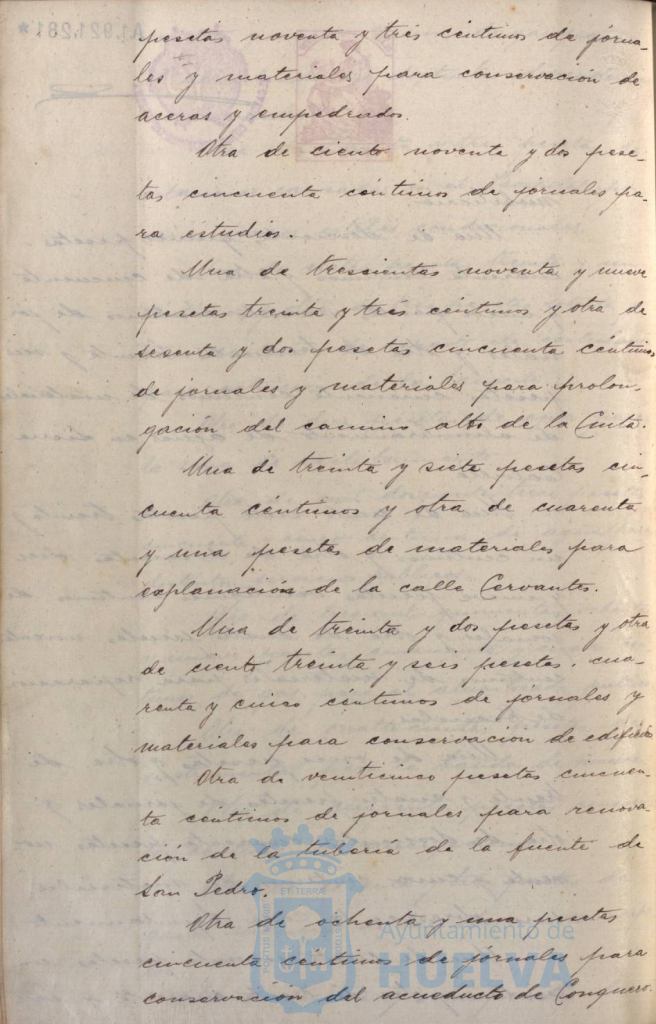 pesetas noventa y tres céntimos de jorna-
les y materiales para conservación de
aceras y empedrados.
Otra de ciento noventa y dos pese-
tas cincuenta céntimos de jornales pa-
ra estudios.
Una de trescientas noventa y nueve
pesetas treinta y tres céntimos y otra de
sesenta y dos pesetas cincuenta céntimos
de jornales y materiales para prolon-
gación del camino alto de la Cinta.
Una de treinta y siete pesetas cin-
cuenta céntimos y otra de cuarenta
y una pesetas de materiales para
explanación de la calle Cervantes.
Una de treinta y dos pesetas y otra
de ciento treinta y seis pesetas, cua-
renta y cinco céntimos de jornales y
materiales para conservación de edificios
Otra de veinticinco pesetas cincuen-
ta céntimos de jornales para renova-
ción de la tubería de la fuente de
San Pedro.
Otra de ochenta y una pesetas
cincuenta céntimos de jornales para
conservación del acueducto de Conquero.
Ayuntamiento de
HUELVA